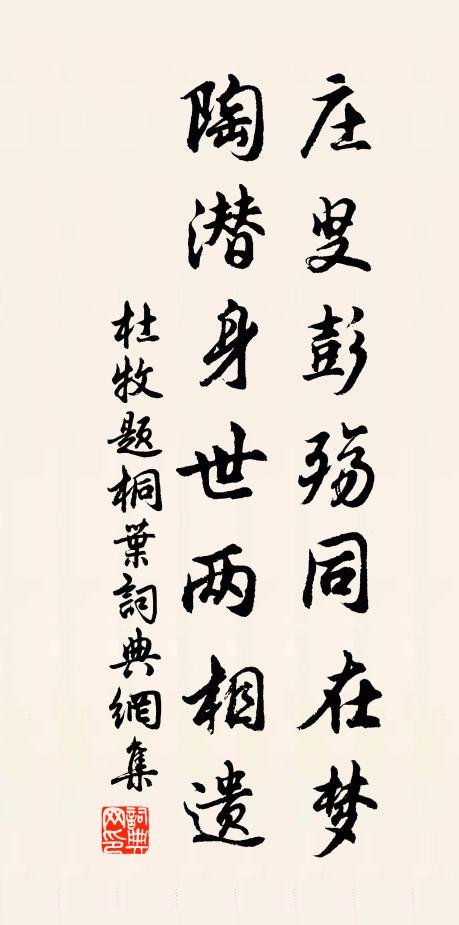 庄叟彭殇同在梦
陶潜身世两相遗
杜牧题桐葉詞典網集
詞典网印